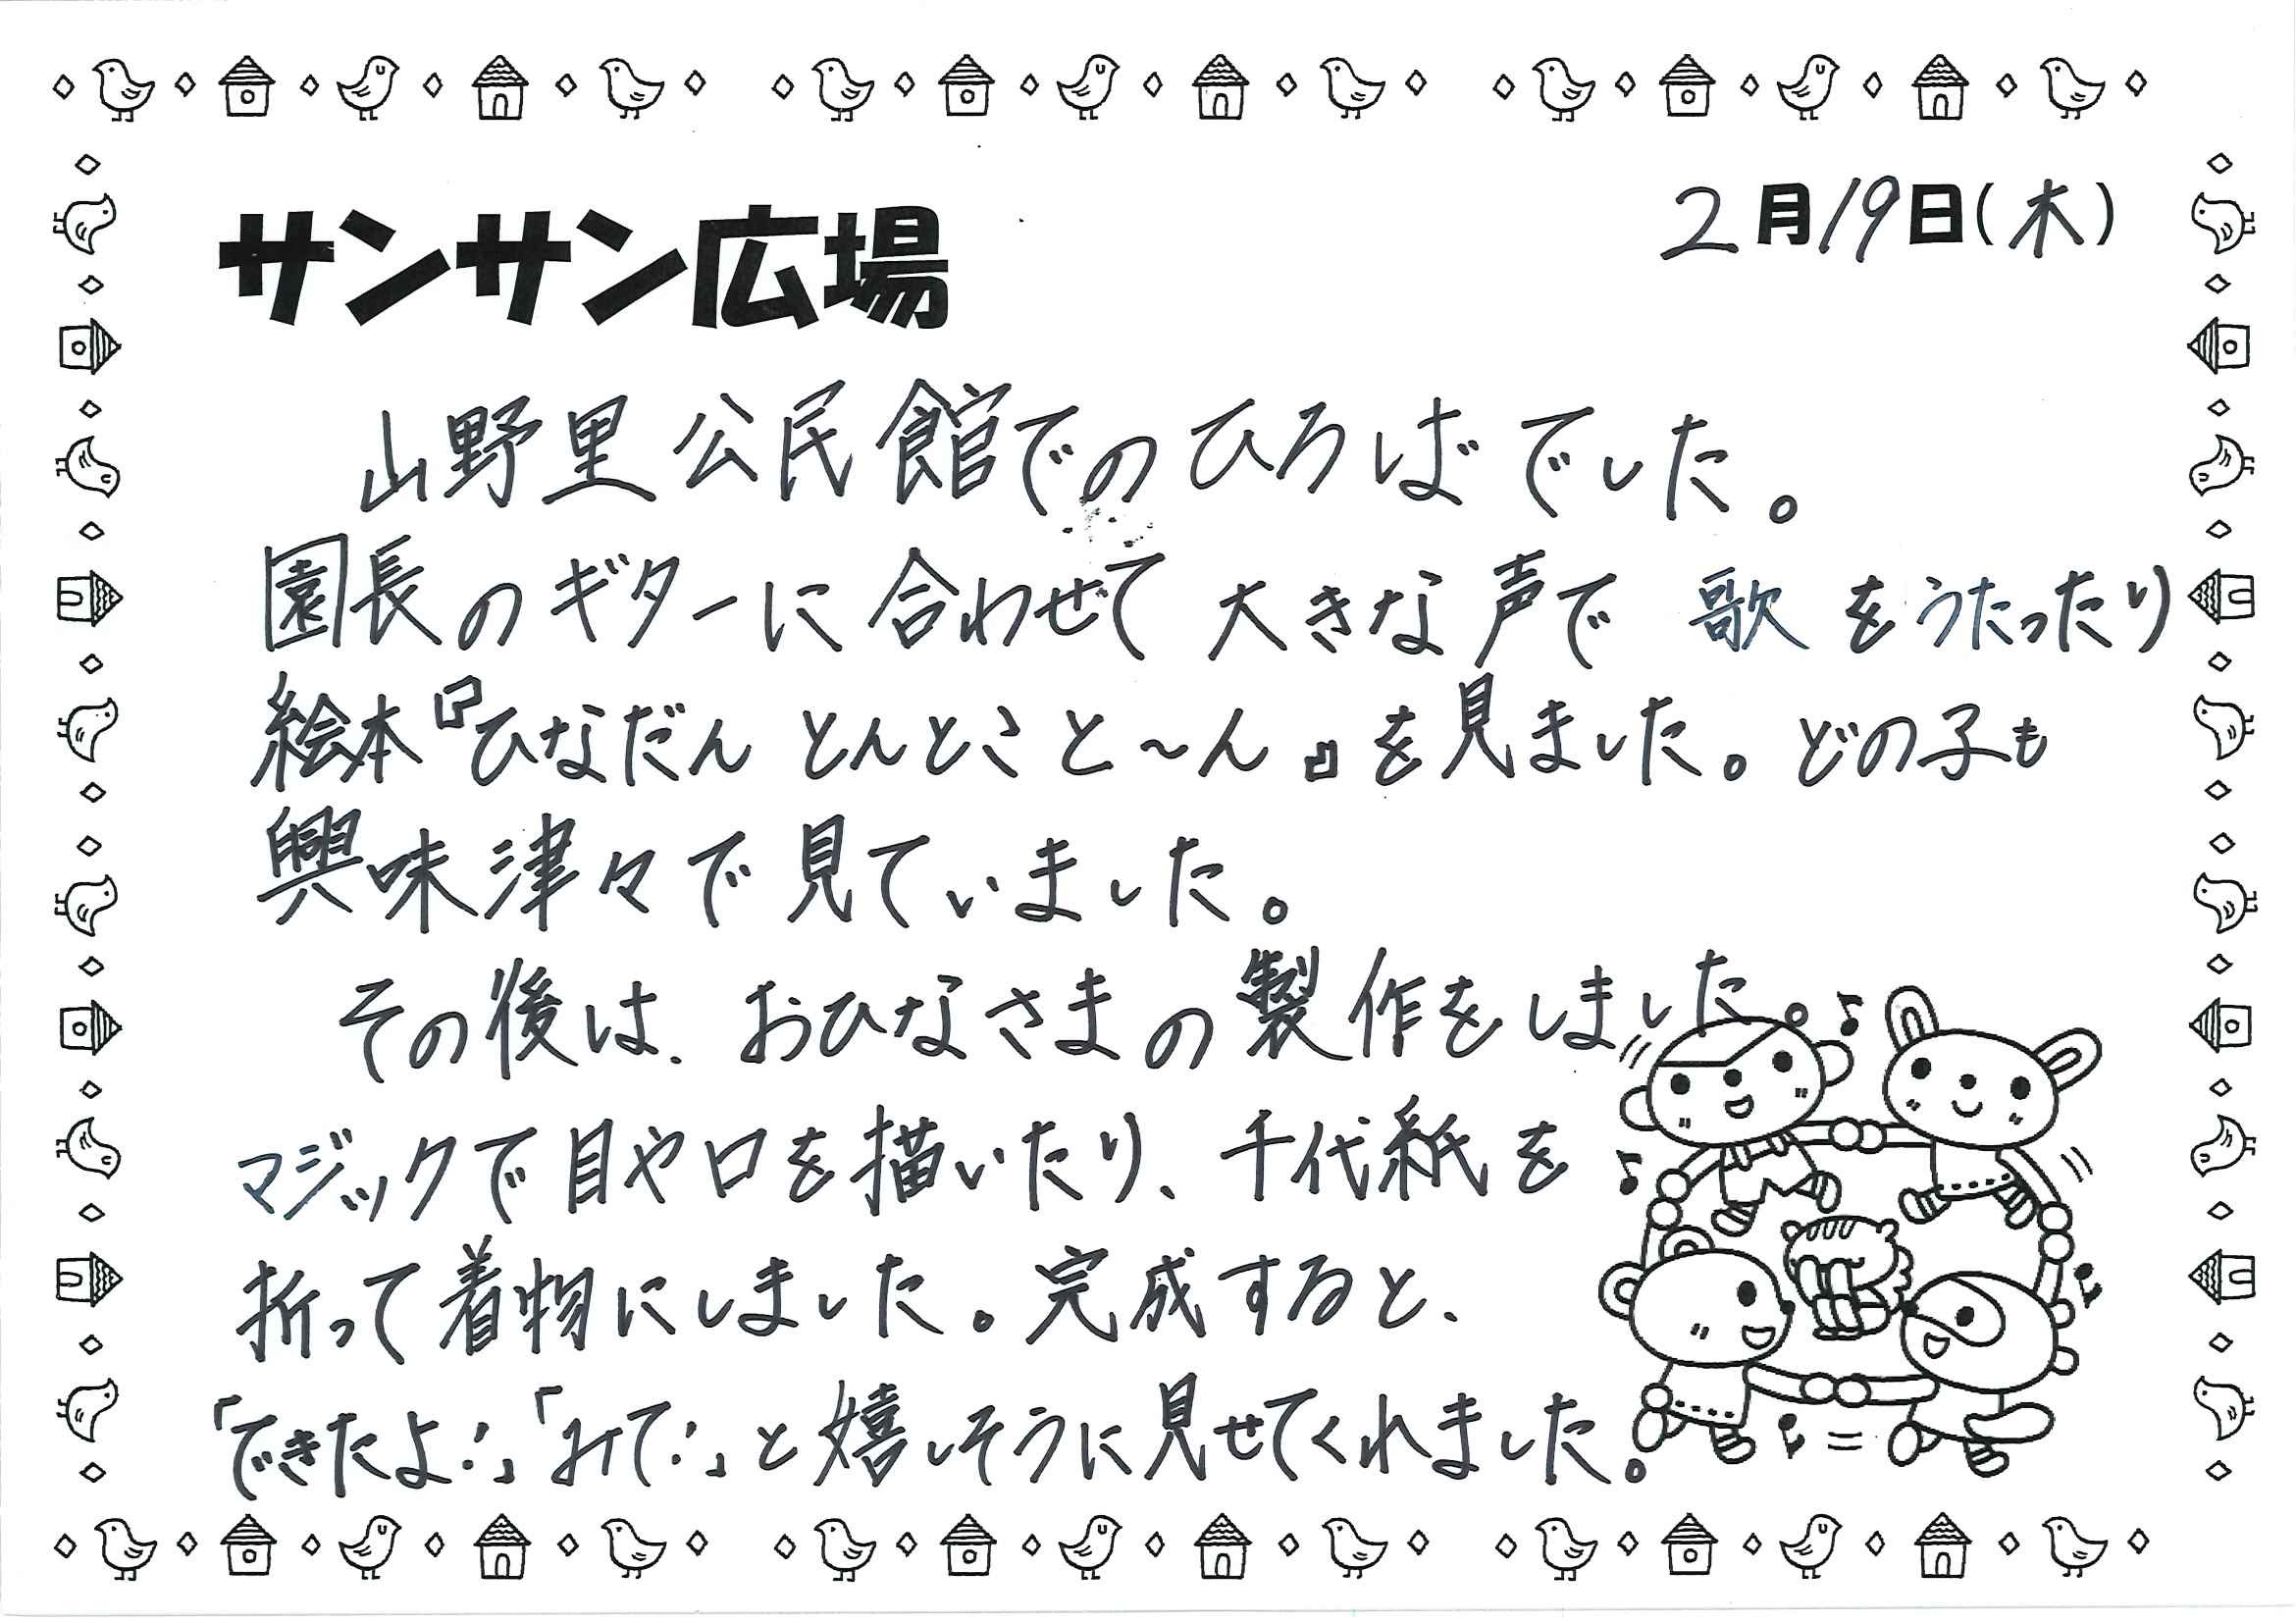 サンサン広場
2月19日(木)
山野里公民館でのひろばでした。
園長のギターに合わせて大きな声で歌をうたったり
絵本『ひなだん とんとこ と～ん』を見ました。どの子も
興味津々で見ていました。
その後は、おひなさまの製作をしました。
マジックで目や口を描いたり、千代紙を
折って着物にしました。完成すると、
「できたよ!」「みて!」と嬉しそうに見せてくれました。